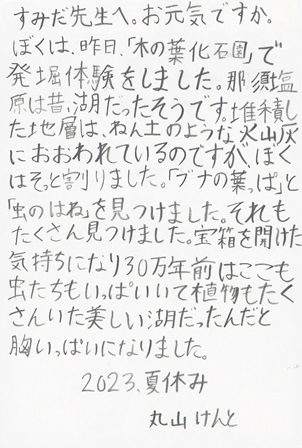 すみだ先生へ。お元気ですか。
ぼくは、昨日、「木の葉化石園」で
発堀体験をしました。那須塩
原は昔、湖だったそうです。堆積し
た地層は、ねん土のような火山灰
におおわれているのですが、ぼく
はそっと割りました。「ブナの葉っぱ」と
「虫のはね」を見つけました。それも
たくさん見つけました。宝箱を開けた
気持ちになり30万年前はここも
虫たちもいっぱいいて植物もたく
さんいた美しい湖だったんだと
胸いっぱいになりました。
2023.夏休み
丸山けんと